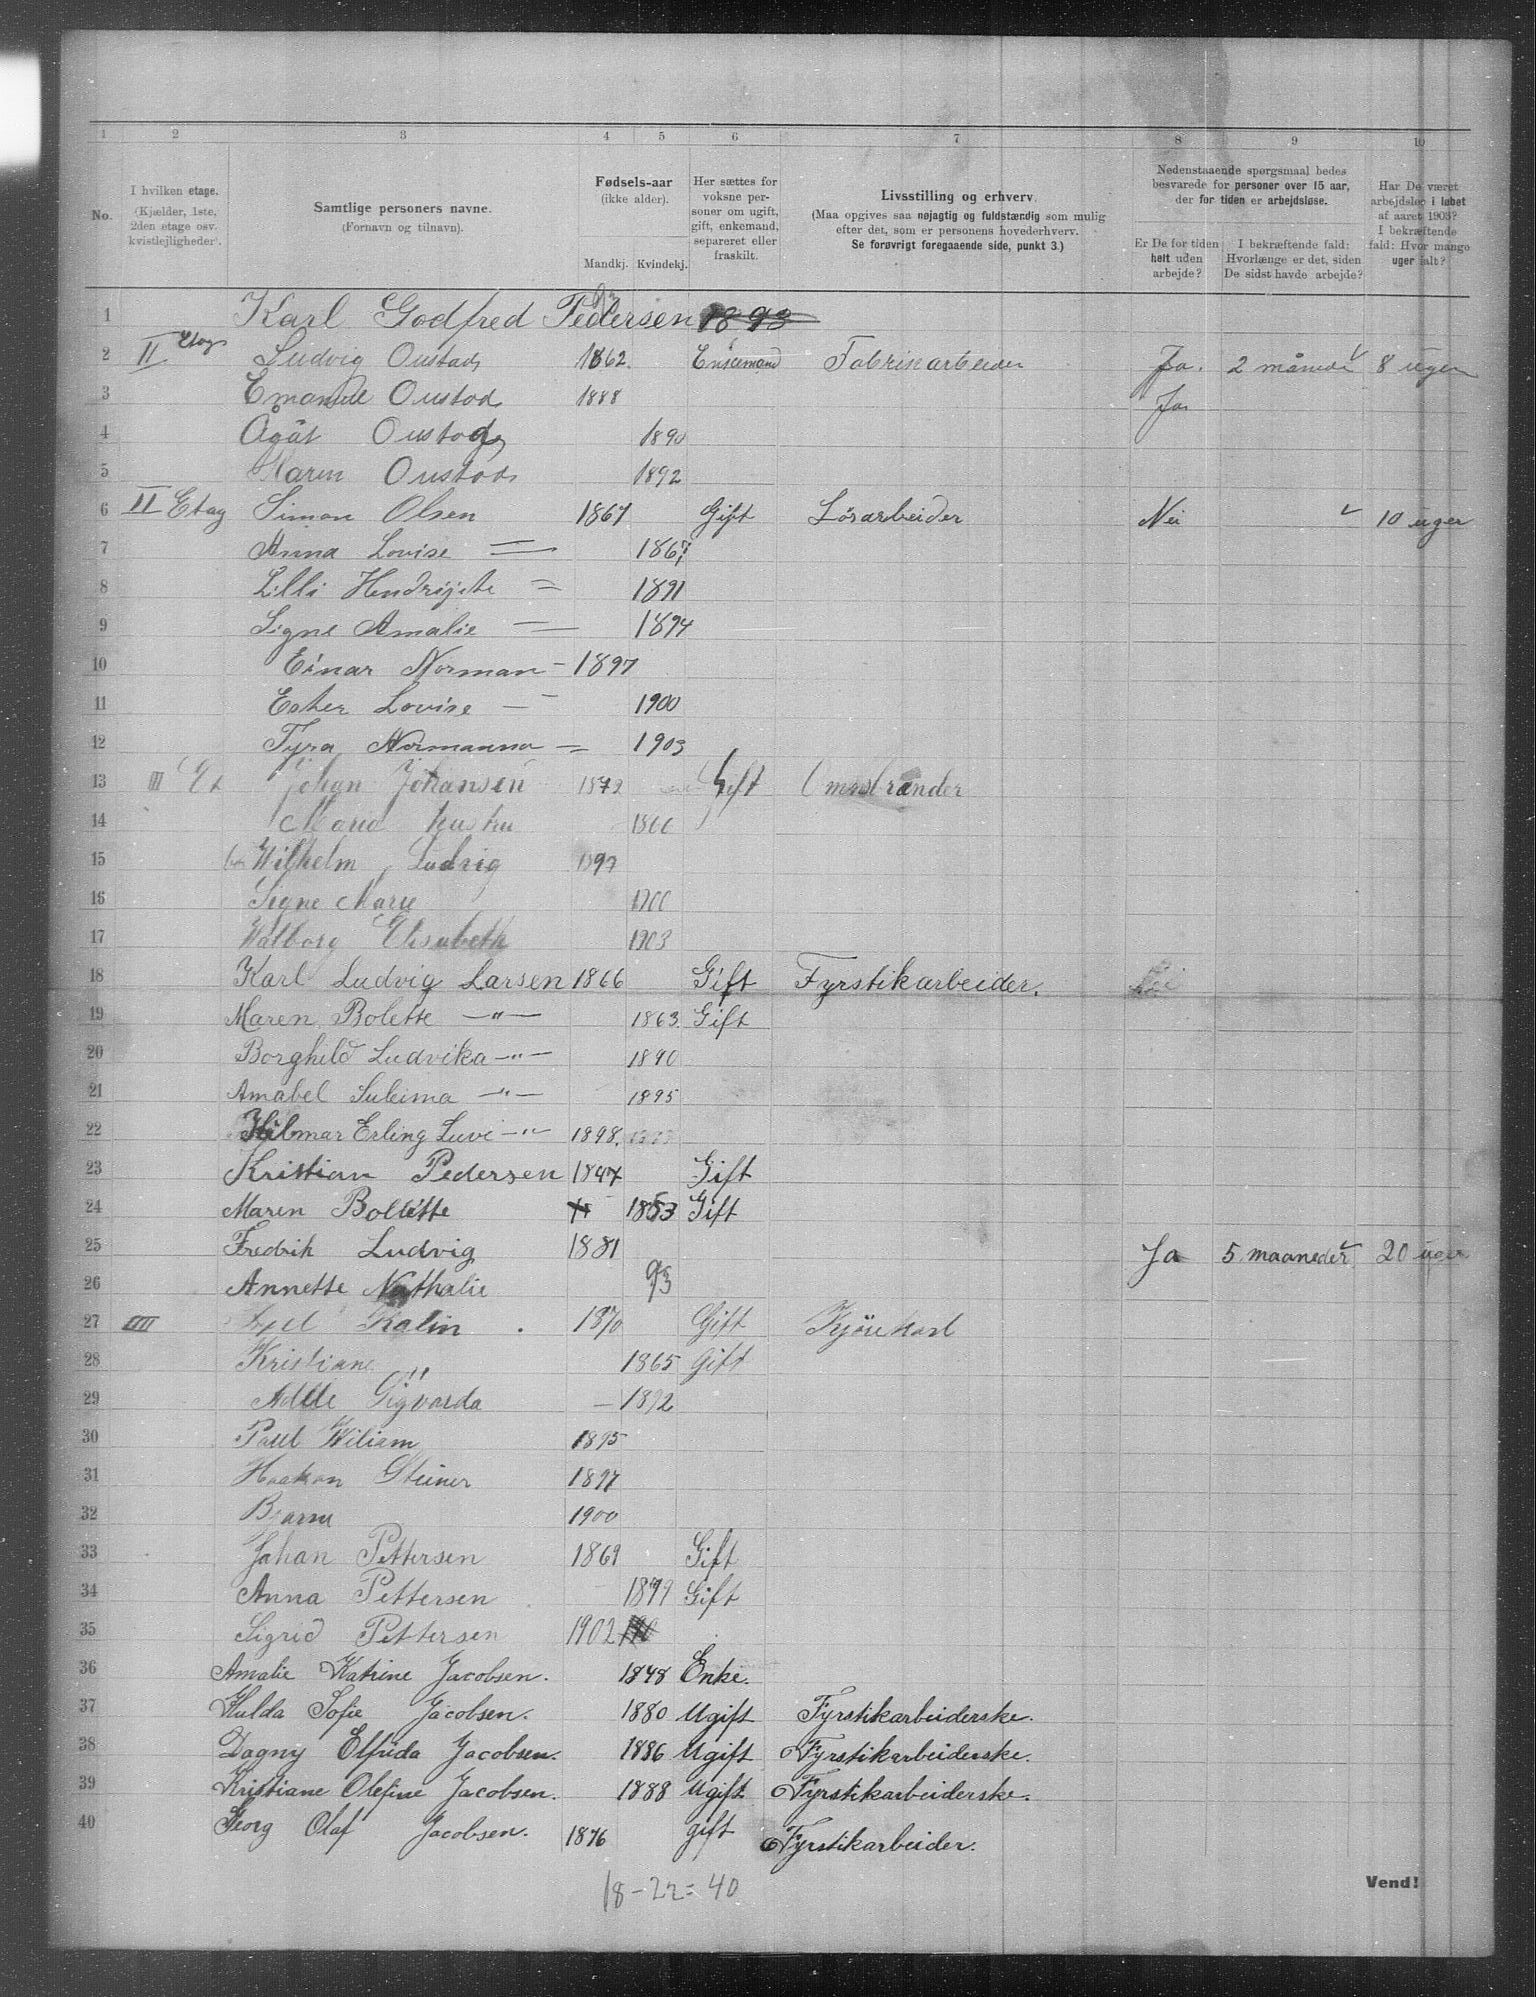 1 2 3 4 5 6 7 8 9 10
No.
I hvilken etage. (Kjælder, 1ste, 2den etage osv. kvistleiligheder).
Samtlige personers navne. (Fornavn og tilnavn).
Fødsels-aar (ikke alder).
Mandkj. Kvindekj.
Her sættes for voksne personer om ugift, gift, enkemand, separeret eller fraskilt.
Livsstilling og erhverv.
(Maa opgives saa nøjagtig og fuldstændig som mulig efter det, som er personens hovederhverv.
Se forøvrigt foregaaende side, punkt 3.)
Nedenstaaende spørgsmaal bedes besvarede for personer over 15 aar, der for tiden er arbejdsløse.
Er De for tiden helt uden arbejde?
I bekræftende fald: Hvorlænge er det, siden De sidst havde arbejde?
Har De været arbejdsløs i løbet af aaret 1903? I bekræftende fald: Hvor mange uger ialt?
1 Karl Godfred Pedersen 1893
2 II Etag Ludvig Oustad 1862 Enkemand Fabrikarbeider Ja. 2 måneder 8 uger
3 Emanuel Oustad 1888 Ja
4 Agåt Oustad 1890
5 Maren Oustad 1892
6 II Etag Simon Olsen 1867 Gift Lösarbeider Nei 10 uger
7 Anna Lovise 1867
8 Lilli Hendrijete 1891
9 Signe Amalie 1894
10 Einar Norman 1897
11 Ester Lovise 1900
12 Tyra Normanna 1903
13 III Et Johan Johansen 1872 Gift
14 Maria hustru 1866
15 Wilhelm Ludvig 1897
16 Signe Marie 1900
17 Walborg Elisabeth 1903
18 Karl Ludvig Larsen 1866 Gift Fyrstikarbeider. Nei
19 Maren Bolette —"— 1863 Gift
20 Borghild Ludvika —"— 1890
21 Amabel Suleima —"— 1895
22 Hilmar Erling Luvi —"— 1898.
23 Kristian Pedersen 1847 Gift
24 Maren Bollette 1853 Gift
25 Fredrik Ludvig 1881 Ja 5 maaneder 20 uger
26 Annette Nathalie 93
27 IIII Axel Kalin 1870 Gift Kjörekarl
28 Kristiane " 1865 Gift
29 Adele Sigvarda 1892
30 Paul Wiliam 1895
31 Haakon Steiner 1897
32 Bjarne 1900
33 Johan Pettersen 1869 Gift
34 Anna Pettersen 1879 Gift
35 Sigrid Pettersen 1902
36 Amalie Katrine Jacobsen. 1848 Enke.
37 Hulda Sofie Jacobsen. 1880 Ugift Fyrstikarbeiderske.
38 Dagny Elfrida Jacobsen. 1886 Ugift Fyrstikarbeiderske.
39 Kristiane Olefine Jacobsen. 1888 Ugift Fyrstikarbeiderske.
40 Georg Olaf Jacobsen. 1876 gift Fyrstikarbeider.
18-22=40
Vend!